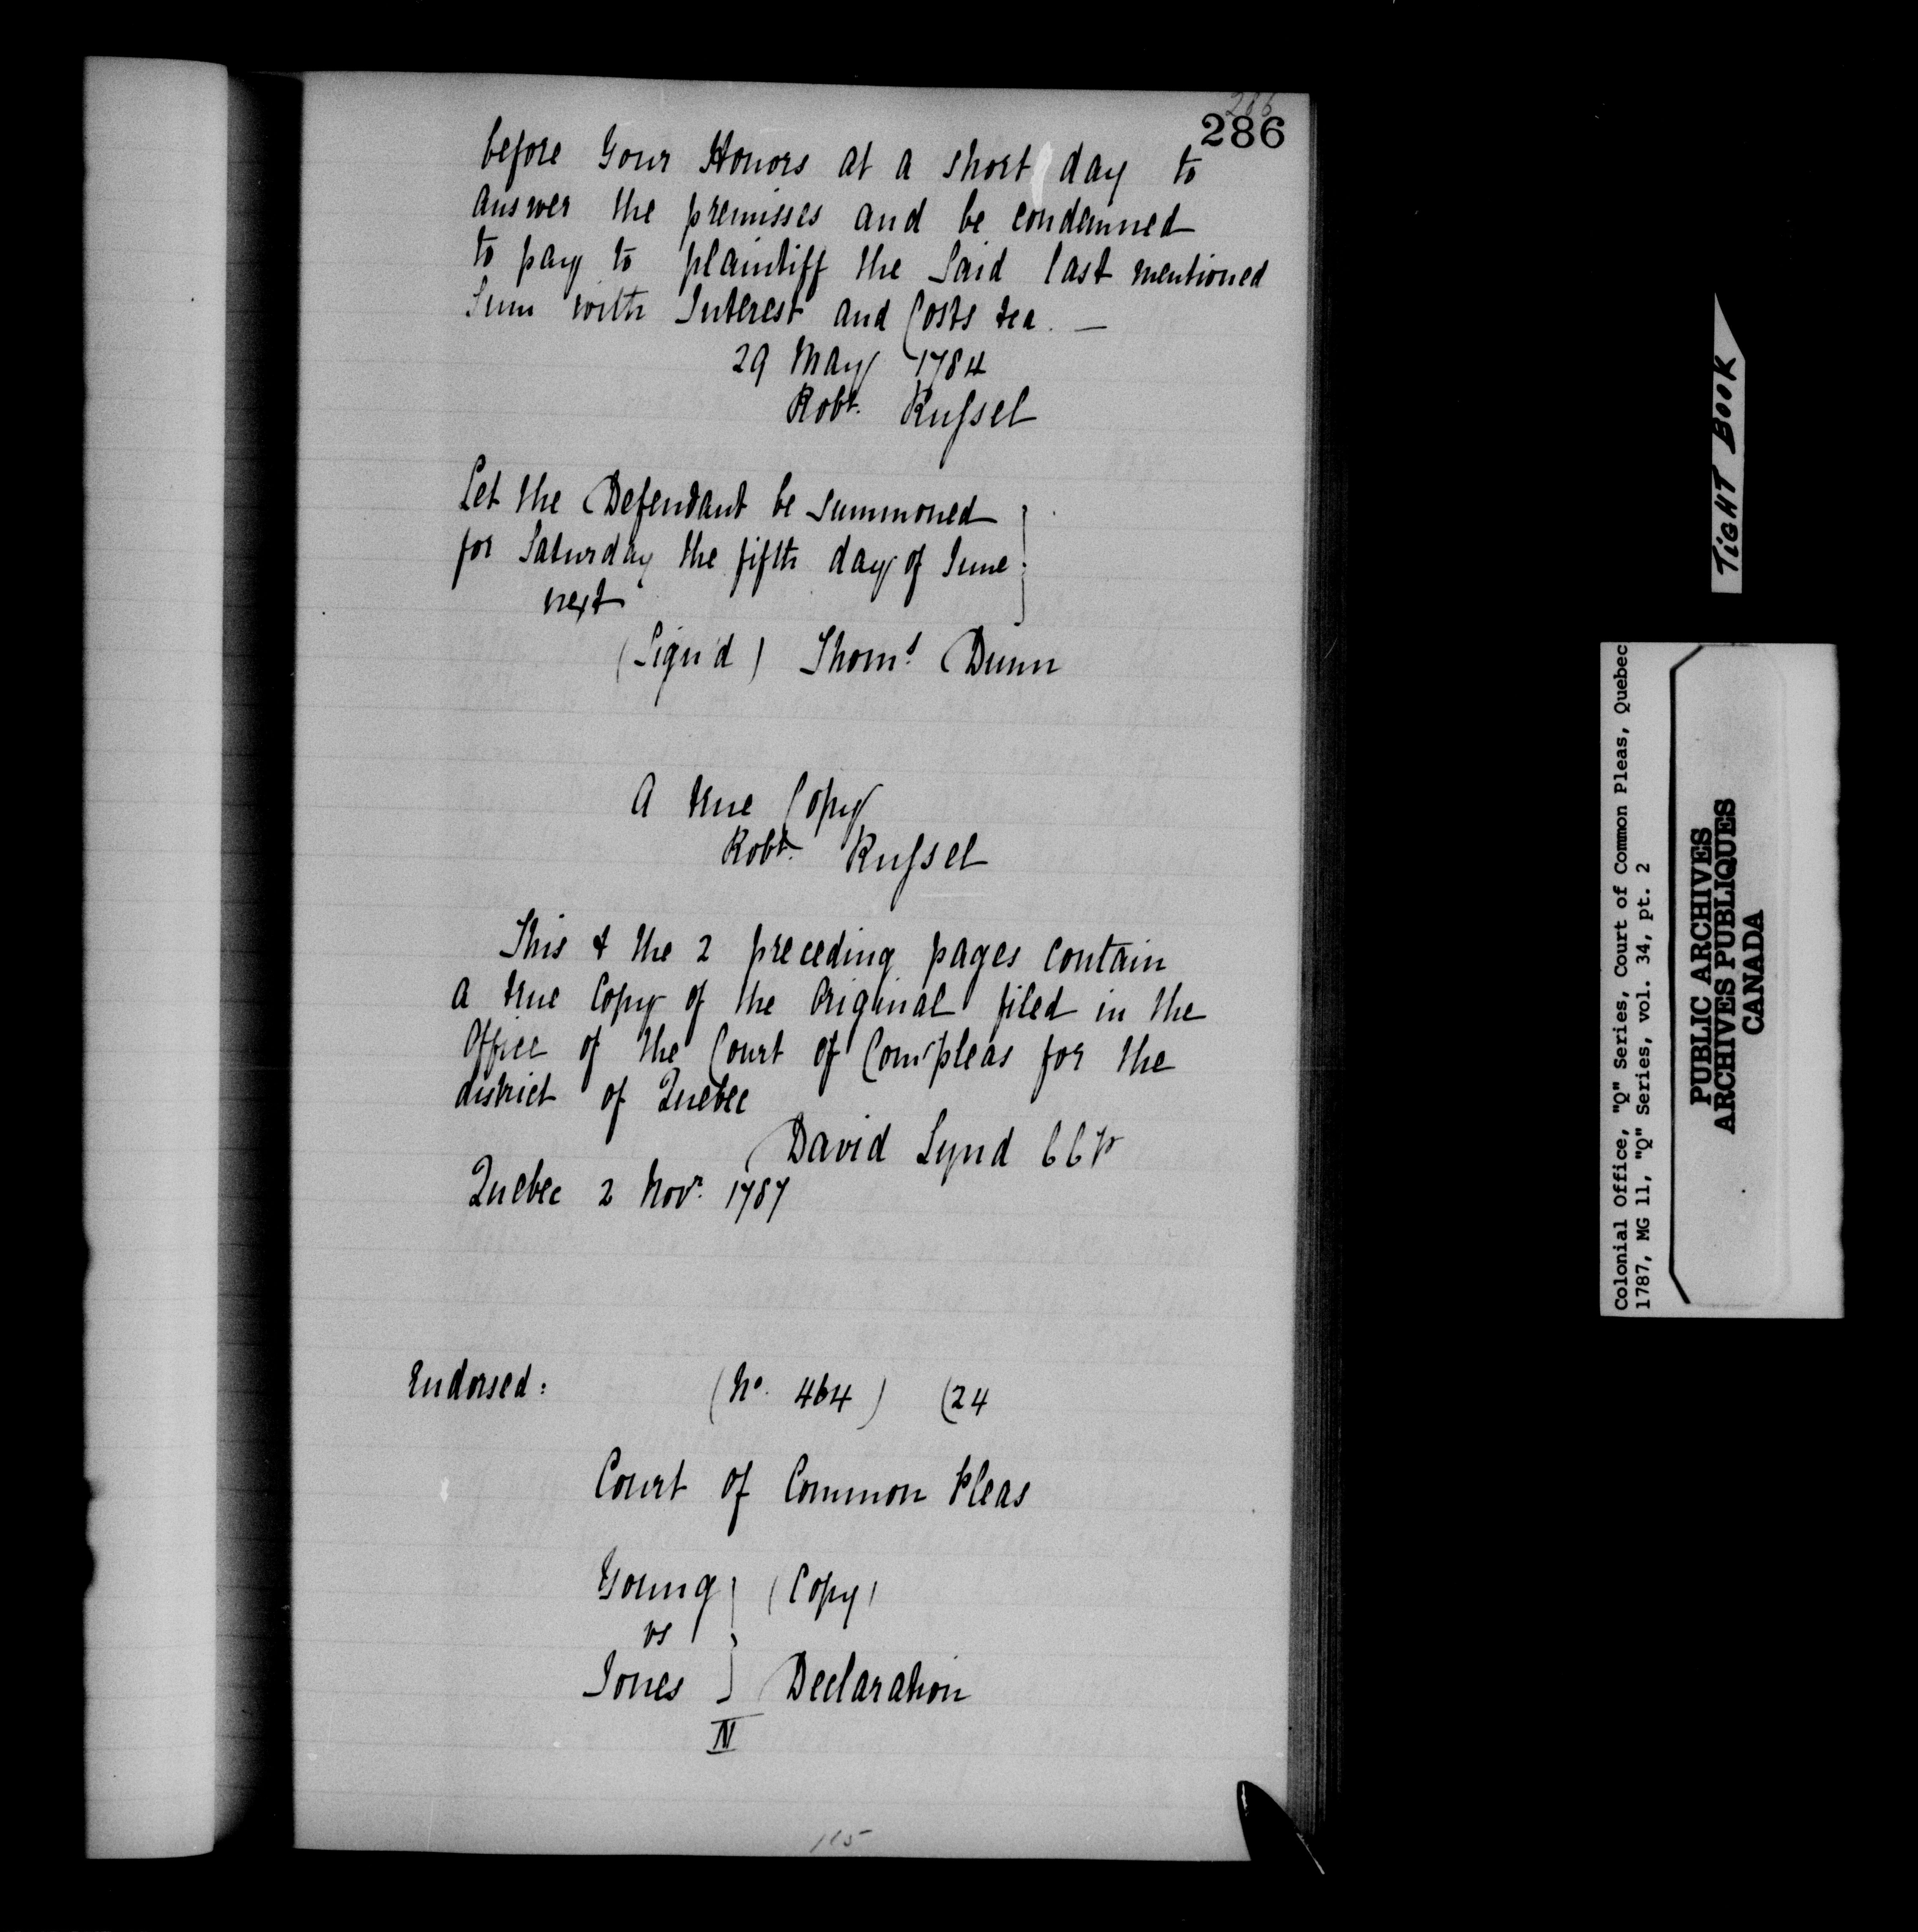 286
286
before Your Honors at a short day to
answer the premisses and be condemned
to pay to plaintiff the said last mentioned
Sum with Interest and Costs &ca. —
29 May 1784
Robt. Russel
Let the Defendant be summoned
for Saturday the fifth day of June
next
(Sign'd) Thoms. Dunn
A true Copy
Robt. Russel
This & the 2 preceding pages contain
a true Copy of the Original filed in the
Office of the Court of Com pleas for the
district of Quebec
David Lynd CCP
Quebec 2 Novr. 1787
Endorsed: (No. 464) (24
Court of Common Pleas
Young } (Copy)
vs
Jones } Declaration
IV
115
TIGHT BOOK
Colonial Office, "Q" Series, Court of Common Pleas, Quebec
1787, MG 11, "Q" Series, vol. 34, pt. 2
PUBLIC ARCHIVES
ARCHIVES PUBLIQUES
CANADA